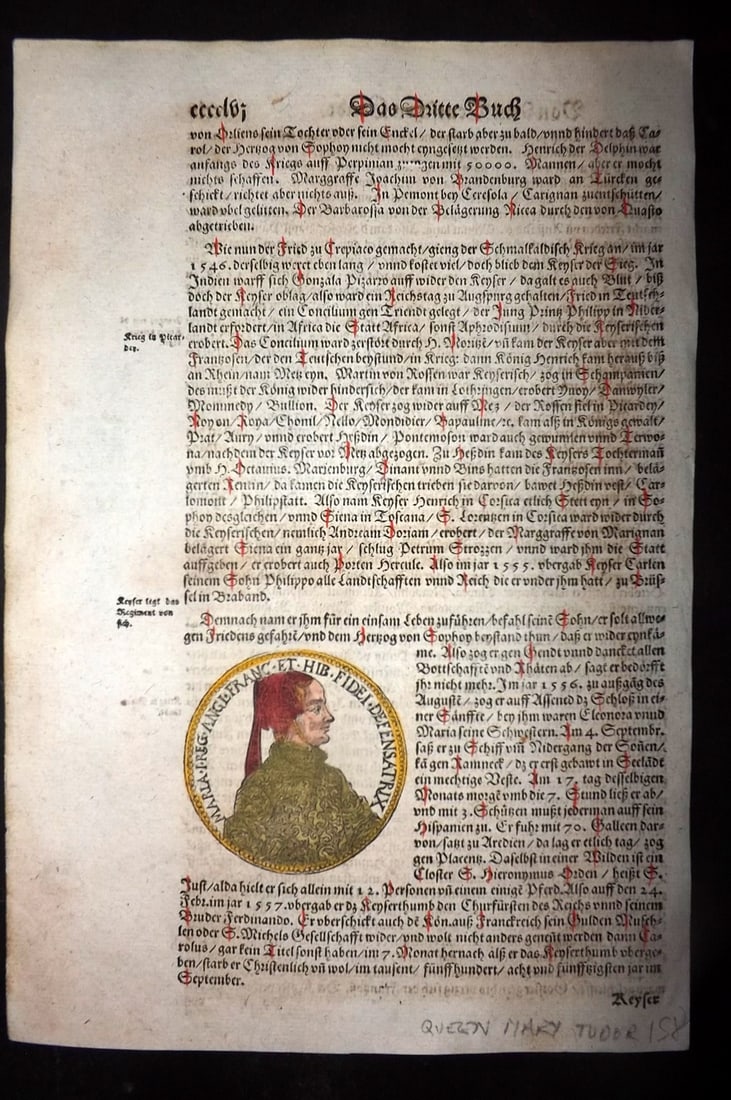 cccclvj
Das Dritte Buch
von Orliens sein Tochter oder sein Enckel / der starb aber zu bald / vnnd hindert daß Ca-
rol / der Hertzog von Sophoy nicht mocht eyngesetzt werden. Henrich der Delphin war
anfangs des Kriegs auff Perpinian mit 50000. Mannen / aber er mocht
nichts schaffen. Marggraffe Joachim von Brandenburg ward an Türcken ge-
schickt / richtet aber nichts auß. In Pemont bey Ceresola / Carignan zuentschütten /
ward vbel gelitten. Der Barbarossa von der Belägerung Nicea durch den von Guasto
abgetrieben.
Wie nun der Fried zu Crepiaco gemacht / gieng der Schmalkaldisch Krieg an / im jar
1546. derselbig weret eben lang / vnnd kostet viel / doch blieb dem Keyser der Sieg. In
Indien warff sich Gonzala Pizarro auff wider den Keyser / da galt es auch Blut / biß
doch der Keyser oblag / also ward ein Reichstag zu Augspurg gehalten / Fried in Teutsch-
landt gemacht / ein Concilium gen Triendt gelegt / der Jung Printz Philipp in Nider-
landt erfordert / in Africa die Statt Africa / sonst Aphrodisium / durch die Keyserischen
erobert. Das Concilium ward zerstört durch H. Moritze / vñ kam der Keyser aber mit dem
Frantzosen / der den Teutschen beystund / in Krieg: dann König Henrich kam herauß biß
an Rhein / nam Metz eyn. Martin von Rossen war Keyserisch / zog in Schampanien /
des mußt der König wider hindersich / der kam in Lothringen / erobert Yuoy / Danwyler /
Mommedy / Bullion. Der Keyser zog wider auff Metz / der Rossen fiel in Picardey /
Noyon / Roya / Chomi / Nello / Mondidier / Bapaulme / rc. kam alß in Königs gewalt /
Prat / Aury / vnnd erobert Heßdin / Pontemoson ward auch gewunnen vnnd Terwo-
na / nach dem der Keyser vor Metz abgezogen. Zu Heßdin kam des Keysers Tochtermañ
vmb H. Octauius. Marienburg / Dinant vnnd Bins hatten die Frantzosen inn / belä-
gerten Rentin / da kamen die Keyserischen trieben sie darvon / bawet Heßdin vest / Car-
lomont / Philipstatt. Also nam Keyser Henrich in Corsica etlich Stett eyn / in So-
phoy desgleichen / vnnd Siena in Toscana / S. Lorentzen in Corsica ward wider durch
die Keyserischen / nemlich Andream Doriam / erobert / der Marggraffe von Marignan
belägert Siena ein gantz jar / schlug Petrum Strozzen / vnnd ward jhm die Statt
auffgeben / er erobert auch Porten Hercule. Also im jar 1555. vbergab Keyser Carlen
seinem Sohn Philippo alle Landtschafften vnnd Reich die er vnder jhm hatt / zu Brüs-
sel in Braband.
Krieg in Picar-
dey.
Keyser legt das
Regiment von
sich.
Demnach nam er jhm für ein einsam Leben zuführen / befahl seinẽ Sohn / er solt allwe-
gen Friedens gefahrẽ / vnd dem Hertzog von Sophoy beystand thun / daß er wider eynkä-
me. Also zog er gen Gendt vnnd dancket allen
Bottschafftẽ vnd Rhäten ab / sagt er bedörfft
jhr nicht mehr. Im jar 1556. zu außgãg des
Augustẽ / zog er auff Assened dz Schloß in ei-
ner Sänffte / bey jhm waren Eleonora vnnd
Maria seine Schwestern. Am 4. Septembr.
saß er zu Schiff vm̃ Nidergang der Soñen /
kã gen Ramneck / dz er erst gebawt in Seelãdt
ein mechtige Veste. Am 17. tag desselbigen
Monats morgẽ vmb die 7. Stund ließ er ab /
vnd mit 3. Schützen mußt jederman auff sein
Hispanien zu. Er fuhr mit 70. Galleen dar-
von / satzt zu Aredien / da lag er etlich tag / zog
gen Placentz. Daselbst in einer Wilden ist ein
Closter S. Hieronymus Orden / heißt S.
Just / alda hielt er sich allein mit 12. Personen vñ einem einigẽ Pferd. Also auff den 24.
Febr. im jar 1557. vbergab er dz Keyserthumb den Churfürsten des Reichs vnnd seinem
Bruder Ferdinando. Er vberschickt auch dẽ Kön. auß Franckreich sein Gulden Musch-
len oder S. Michels Gesellschafft wider / vnd wolt nicht anders geneñt werden dann Ca-
rolus / gar kein Titel sonst haben / im 7. Monat hernach alß er das Keyserthumb vberge-
ben / starb er Christenlich vñ wol / im tausent / fünffhundert / acht vnd fünfftzigsten jar im
September.
MARIA·I·REG·ANGL·FRANC·ET·HIB·FIDEI·DEFENSATRIX
Keyser
QUEEN MARY TUDOR 158